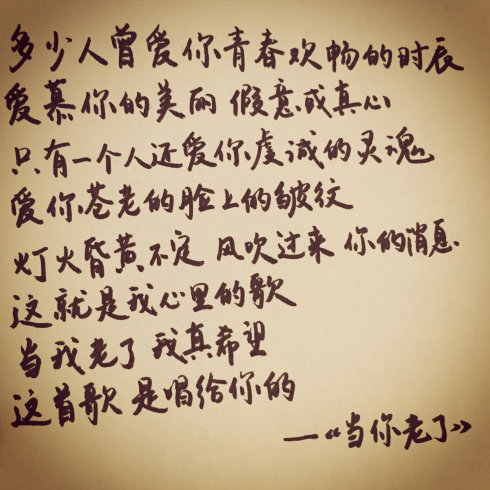 多少人曾爱你青春欢畅的时辰
爱慕你的美丽 假意或真心
只有一个人还爱你虔诚的灵魂
爱你苍老的脸上的皱纹
灯火昏黄不定 风吹过来 你的消息
这就是我心里的歌
当我老了 我真希望
这首歌 是唱给你的
—《当你老了》